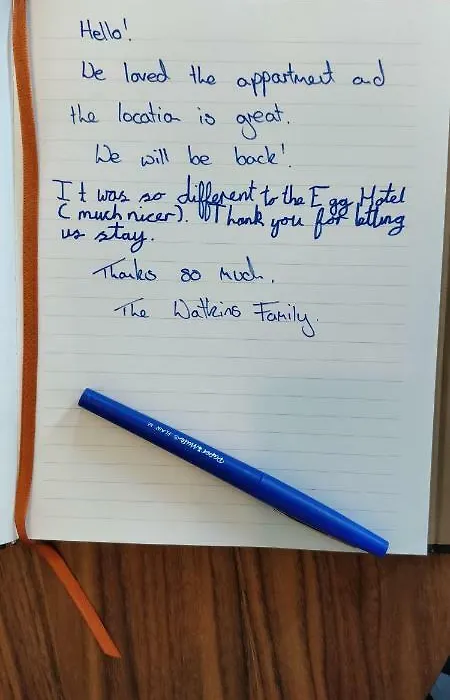 Hello!
We loved the appartment and
the location is great.
We will be back!
It was so different to the Egg Hotel
(much nicer). Thank you for letting
us stay.
Thanks so much.
The Watkins Family.
Paper:Mate FLAIR M